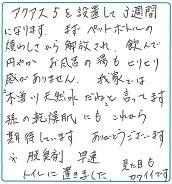 アクアス5を設置して3週間
になります。まずペットボトルの
煩わしさから解放され、飲んで
円やか お風呂の湯もヒリヒリ
感がありません。我家では
"木曽川天然水だね"と言ってます
孫の乾燥肌にもこれから
期待しています ありがとうございます
※ 脱臭剤 早速
トイレに置きました。
見た目も
カワイイです